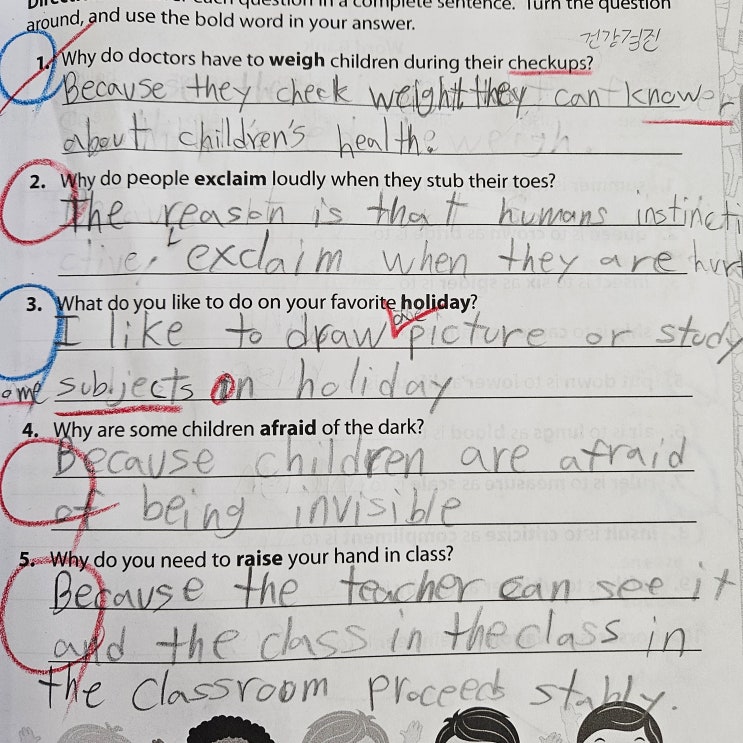 each question in a complete sentence. Turn the question
around, and use the bold word in your answer.
건강검진
1. Why do doctors have to weigh children during their checkups?
Because they check weight they can know
about children's health.
2. Why do people exclaim loudly when they stub their toes?
The reason is that humans instincti
ctive, exclaim when they are hurd
3. What do you like to do on your favorite holiday?
one
I like to draw picture or study
ome subjects on holiday
4. Why are some children afraid of the dark?
Because children are afraid
of being invisible
5. Why do you need to raise your hand in class?
Because the teacher can see it
and the class in the class in
the classroom proceeds stably.